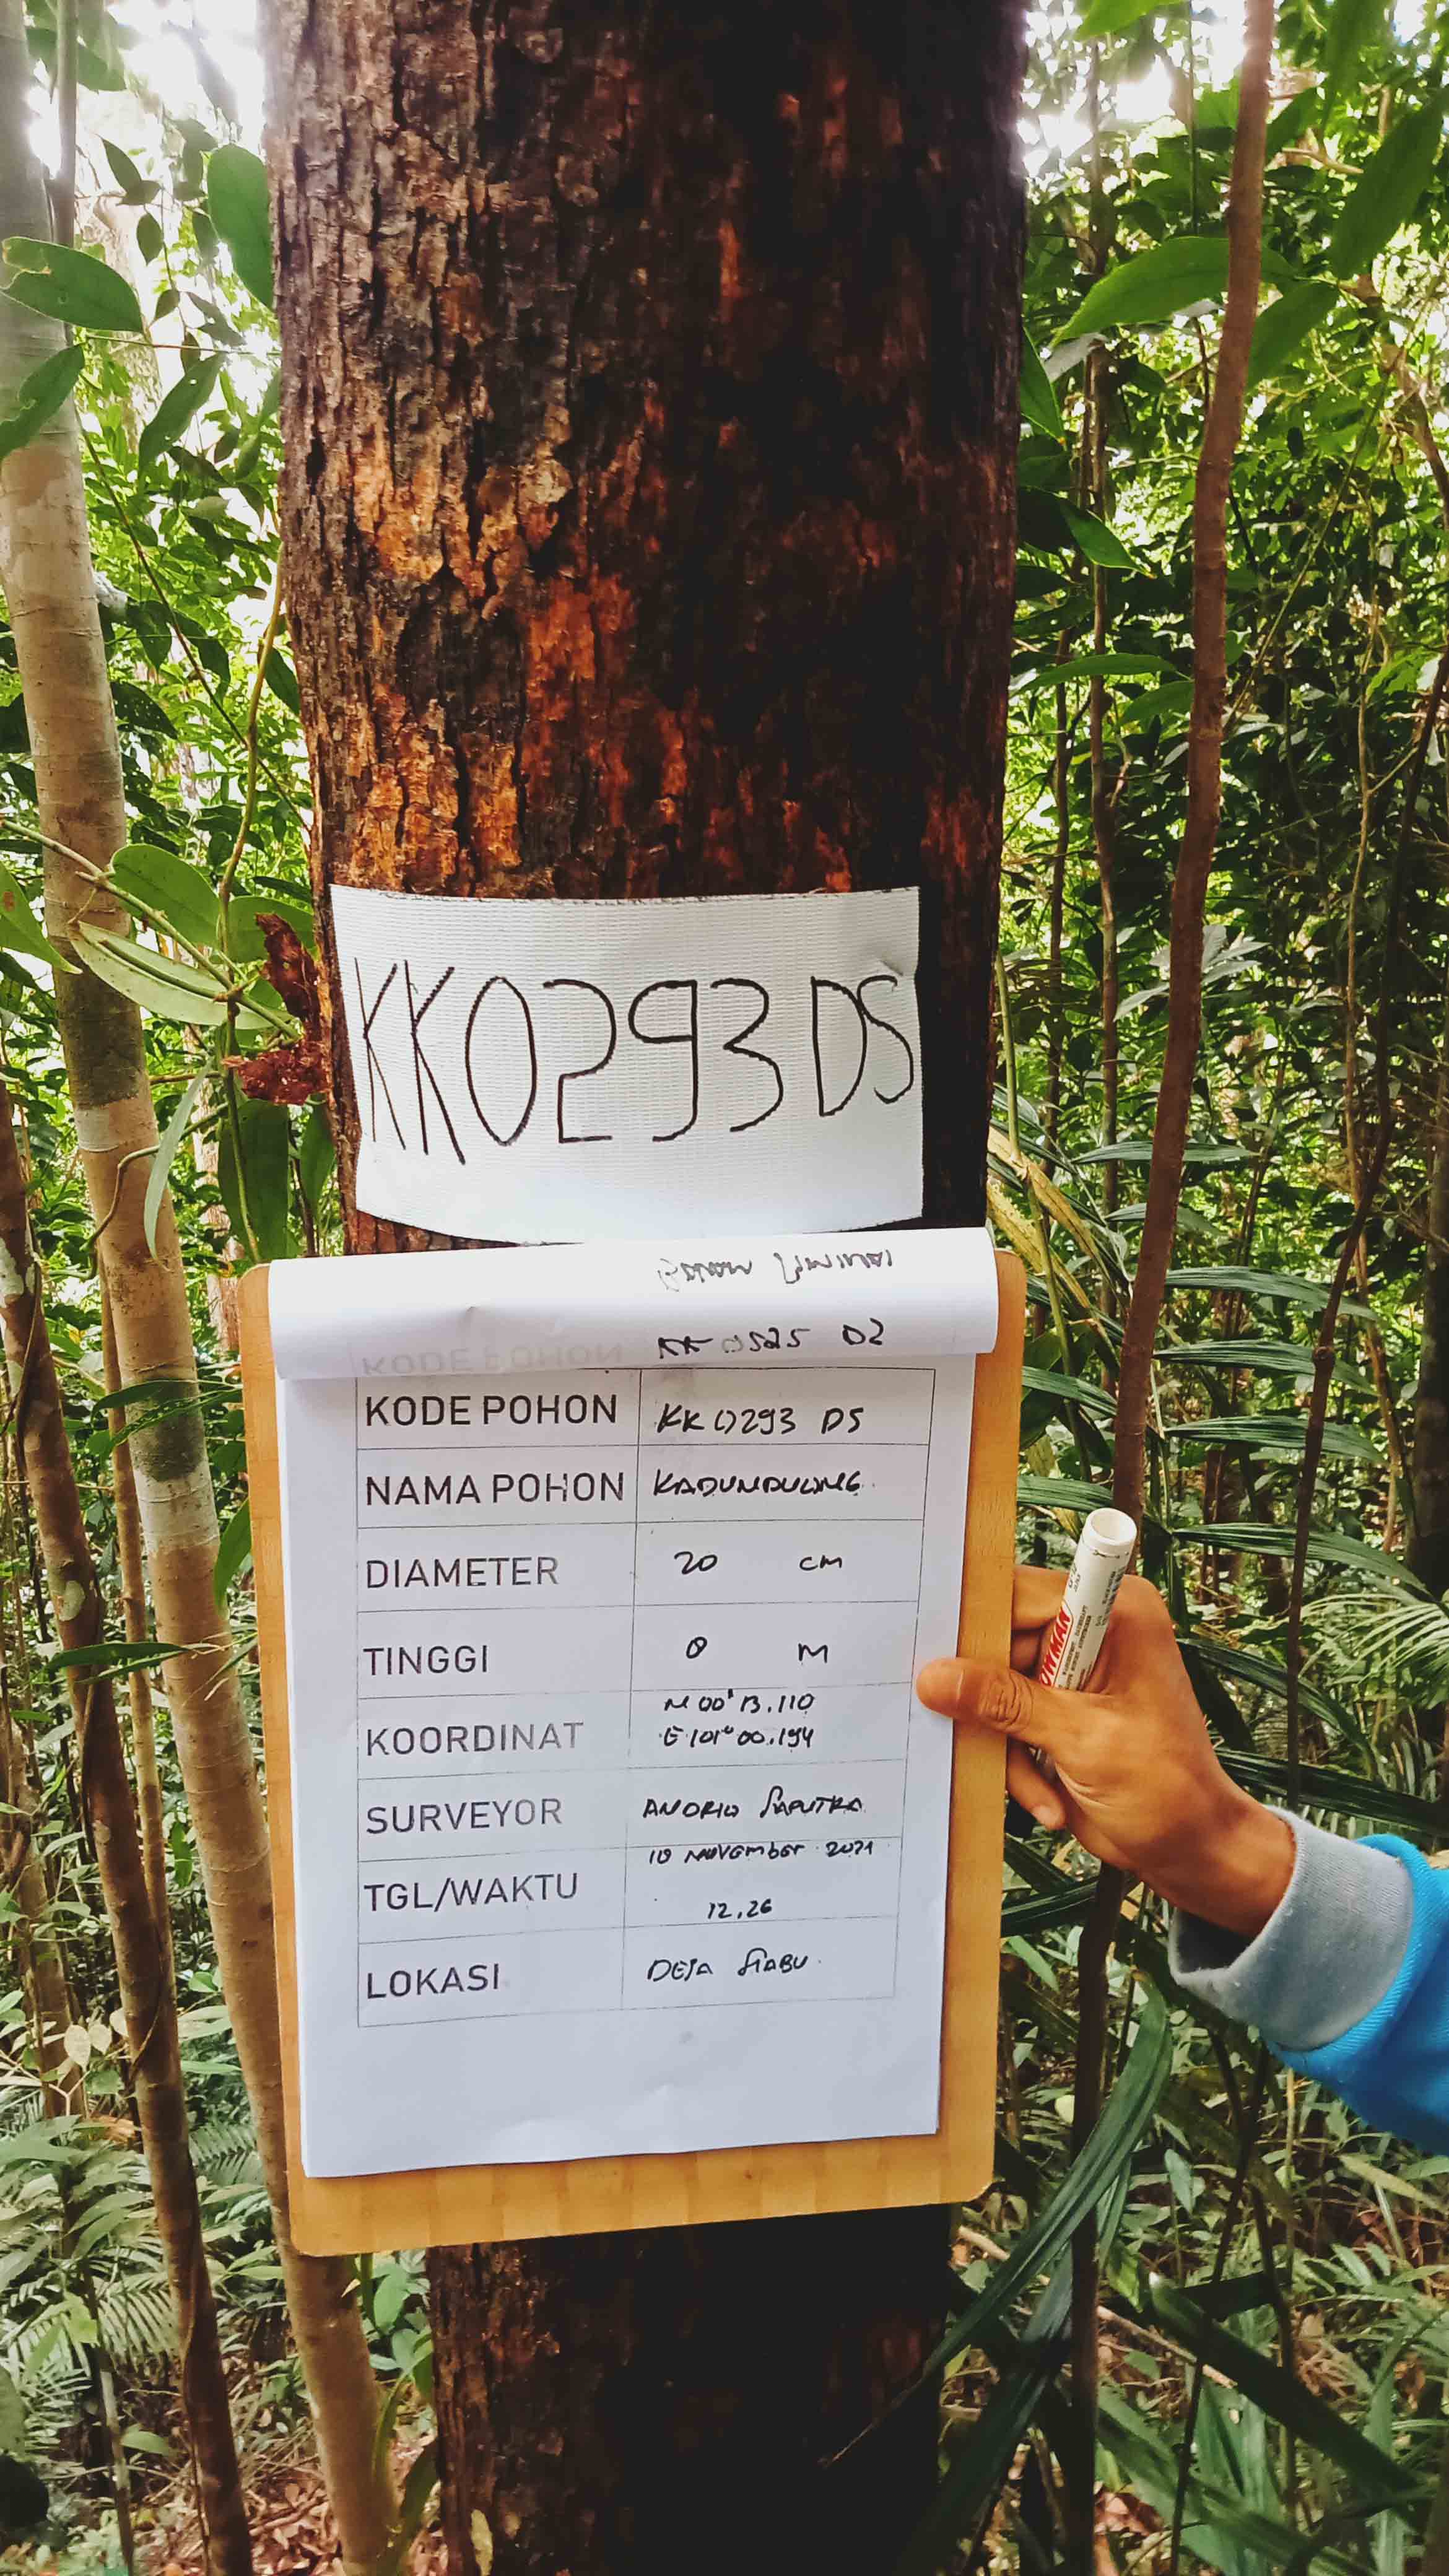 KK0293 DS
KK 0525 D2
KODE POHON KK 0293 DS
NAMA POHON KADUNDUONG
DIAMETER 20 cm
TINGGI 8 M
KOORDINAT N 00° 13.110
E 101° 00.194
SURVEYOR ANDRIO SAPUTRA
TGL/WAKTU 10 November 2021
12.26
LOKASI DESA SIABU